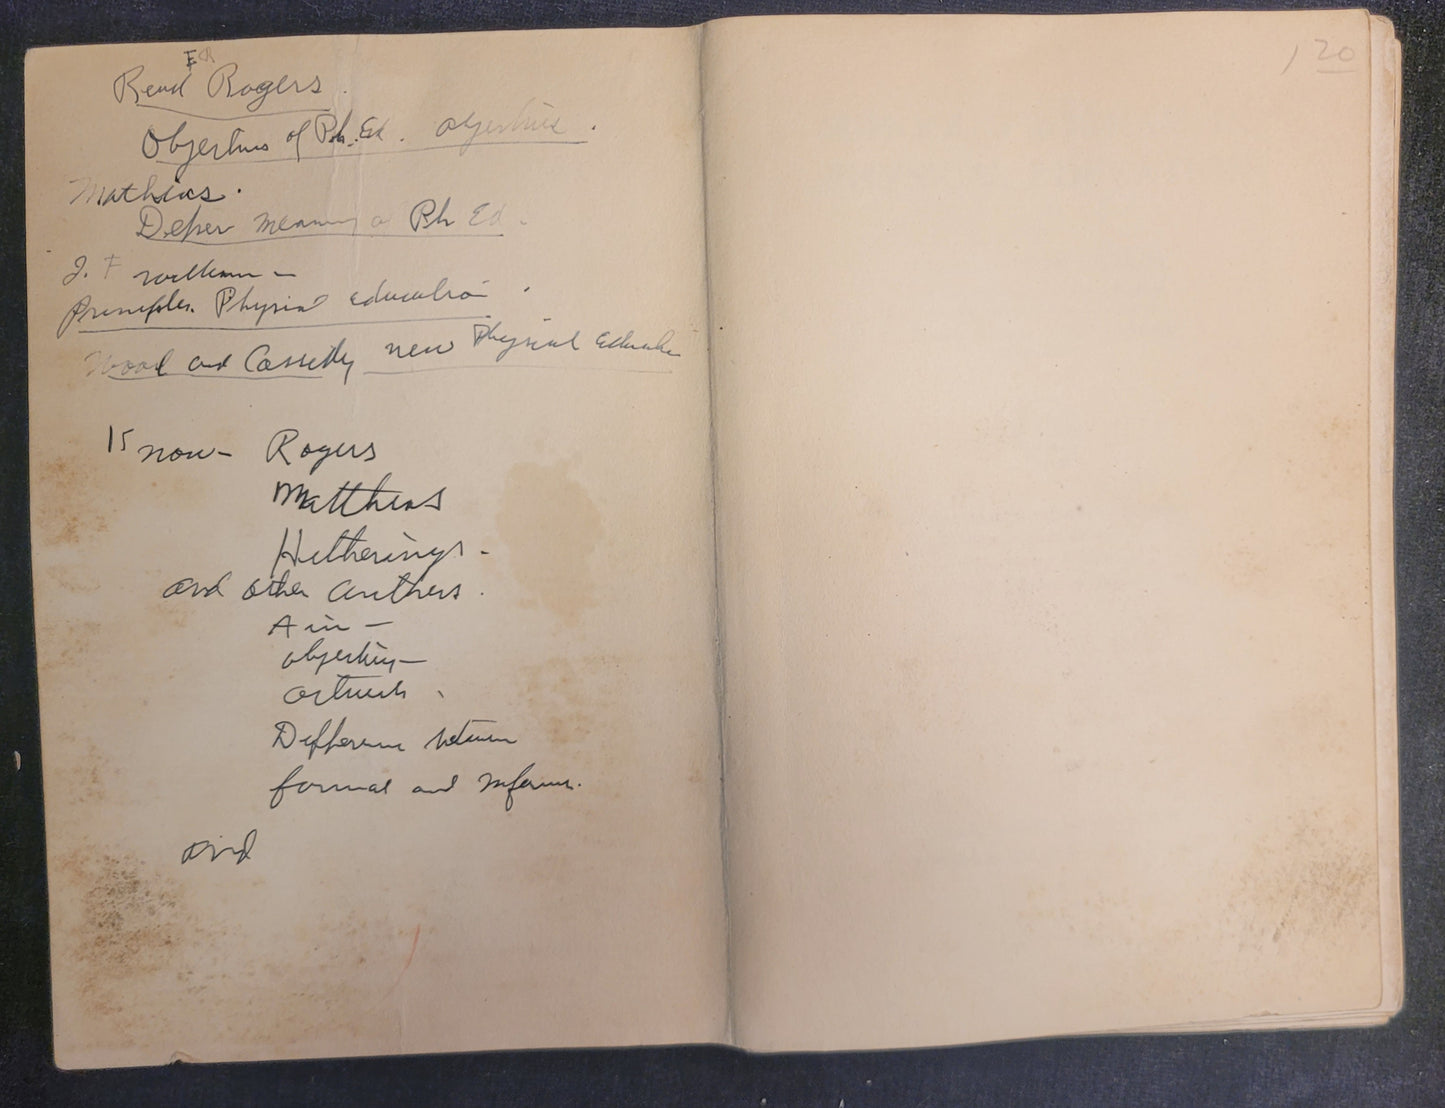 FR
Read Rogers.
Objectives of Ph. Ed. objectives.
Mathias.
Deeper meaning of Ph Ed.
J. F William –
Principles Physical education.
Wood and Cassidy new Physical Education
15 now – Rogers
Matthias
Hetherings –
and other authers.
Aim –
objectives –
Difference between
formal and informal.
and
20